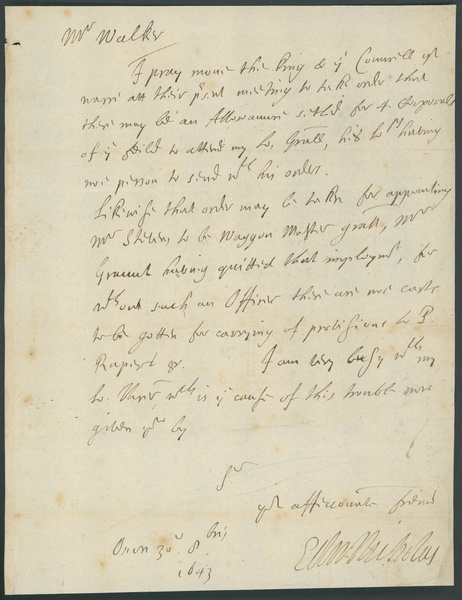 Mr Walker
I pray move the King & ye Councell of
warre att their pr̃sent meeting to take order that
there may be an Allowance setled for 4. Corporals
of ye feild to attend my Lo. Gr̃all, his Lopp having
noe person to send wth his orders.
Likewise that order may be taken for appointing
Mr Stevens to be Waggon Master grall, Mr
having quitted that imploymt, for
wthout such an Officer there are noe carts
to be gotten for carrying of provisions to P
Rupert &c. I am very busy wth my
Lo: wch is ye cause of this trouble now
given you by
Sr
yor affectionate friend
Oxon 30o 8bris
1643
Edw. Nicholas